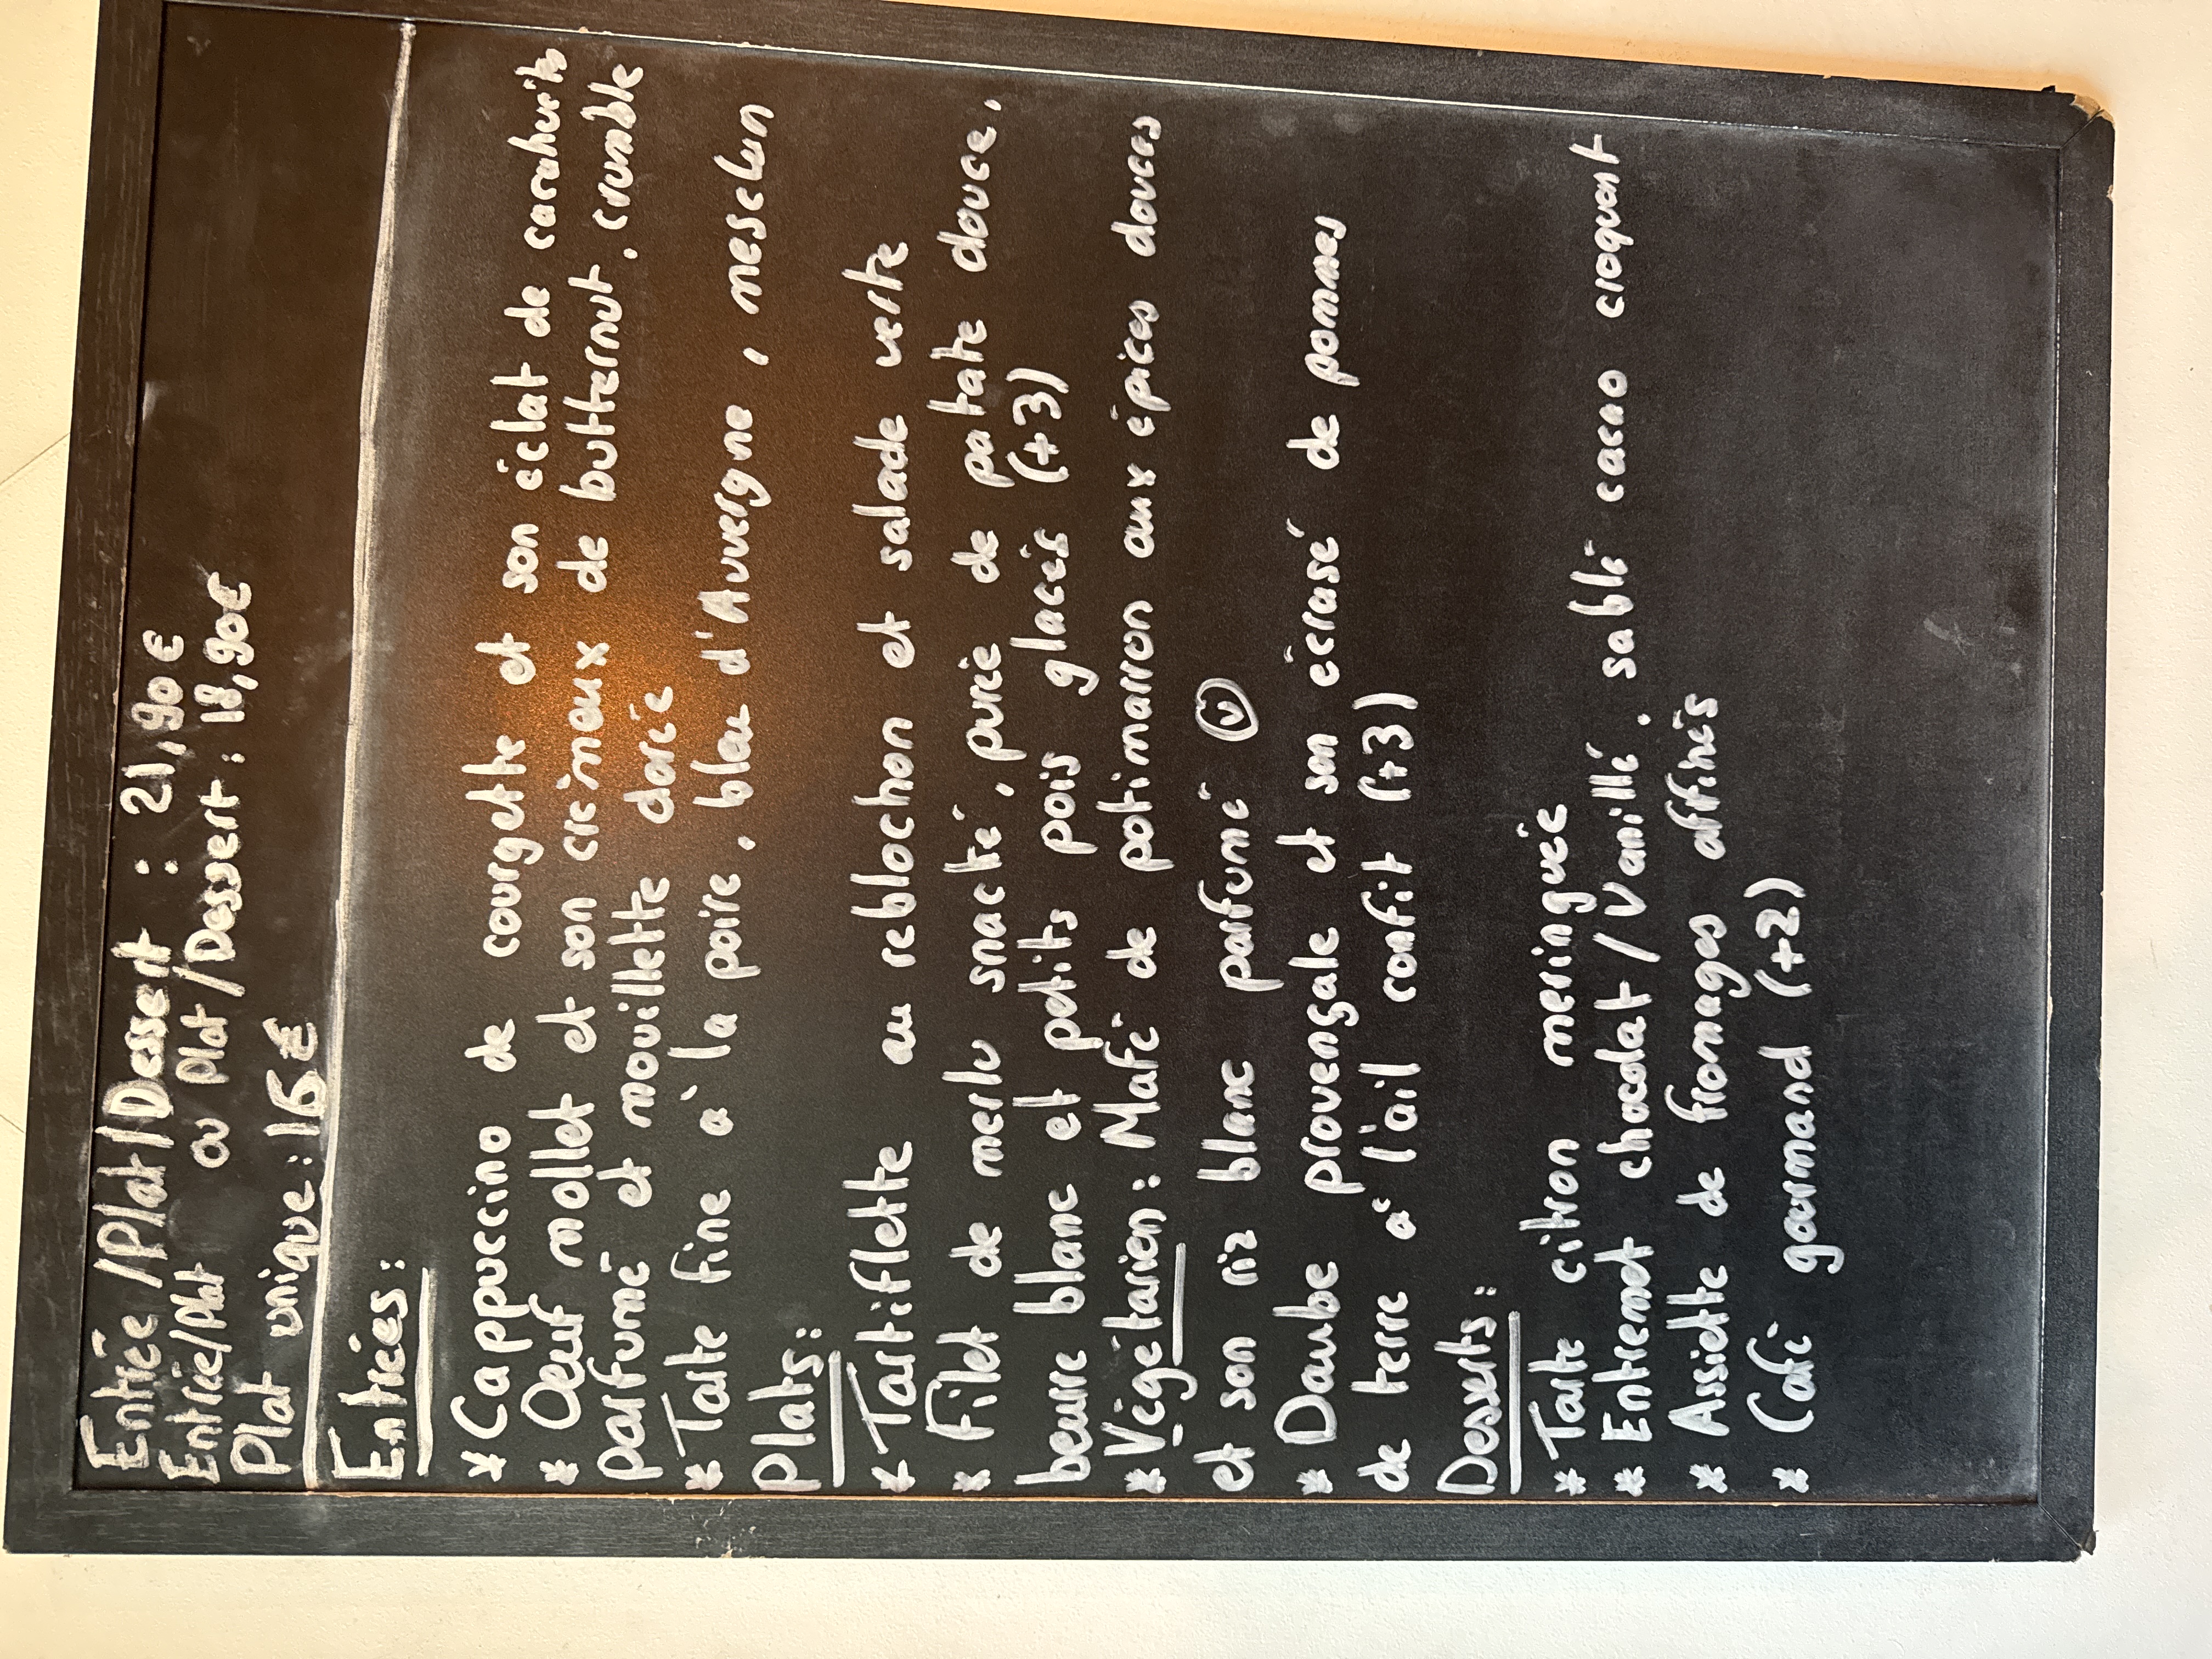 Entrée/Plat/Dessert : 21,90€
Entrée/Plat ou Plat/Dessert : 18,90€
Plat unique : 15€
Entrées :
* Cappuccino de courgette et son éclat de cacahuète
* Oeuf mollet et son crémeux de butternut, crumble
parfumé et mouillette dorée
* Tarte fine à la poire, bleu d'Auvergne, mesclun
Plats :
* Tartiflette au reblochon et salade verte
* Filet de merlu snacké, purée de patate douce,
beurre blanc et petits pois glacés (+3)
* Végétarien : Mafé de potimarron aux épices douces
et son riz blanc parfumé V
* Daube provençale et son écrasé de pommes
de terre à l'ail confit (+3)
Desserts :
* Tarte citron meringuée
* Entremet chocolat/Vanillé, sablé cacao croquant
* Assiette de fromages affinés
* Café gourmand (+2)